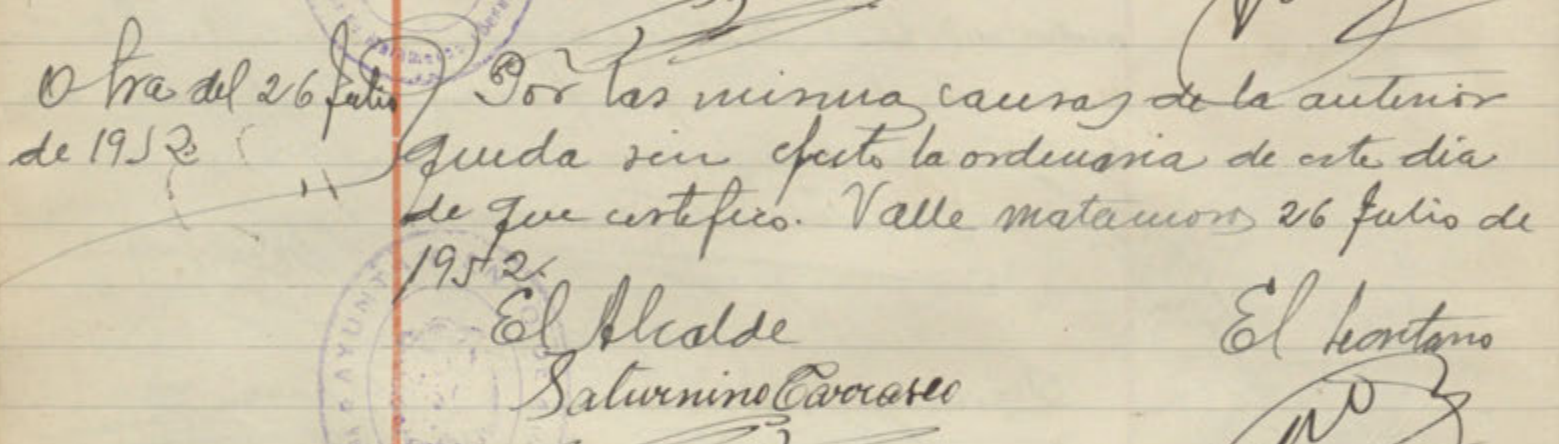 Otra del 26 Julio
de 1952.
Por las mismas causas de la anterior
queda sin efecto la ordinaria de este dia
de que certifico. Valle matamoros 26 Julio de
1952.
El Alcalde
El Secretario
Saturnino Carrasco
AYUNT